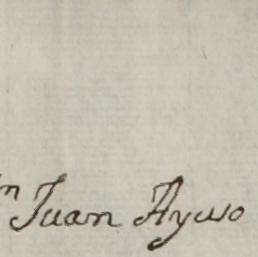 n Juan Ayuso